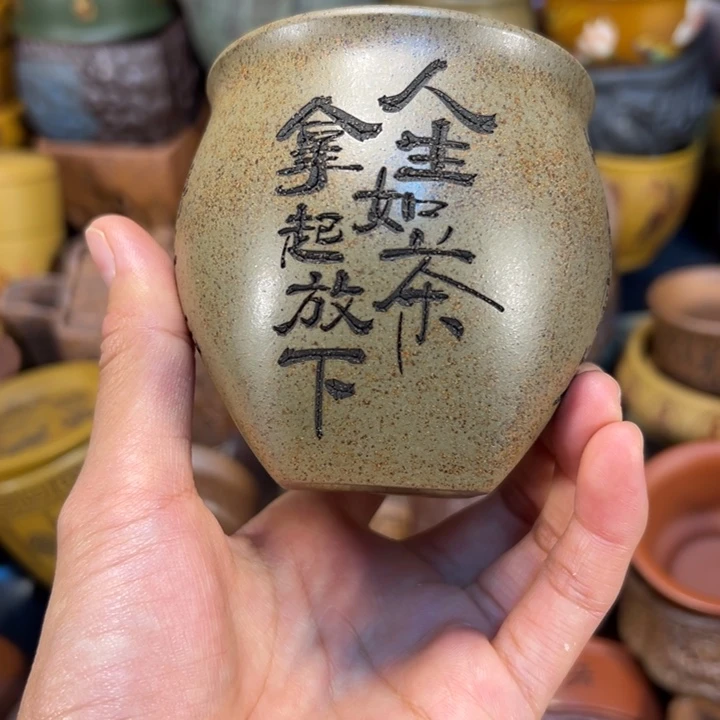 人生如茶
拿起放下